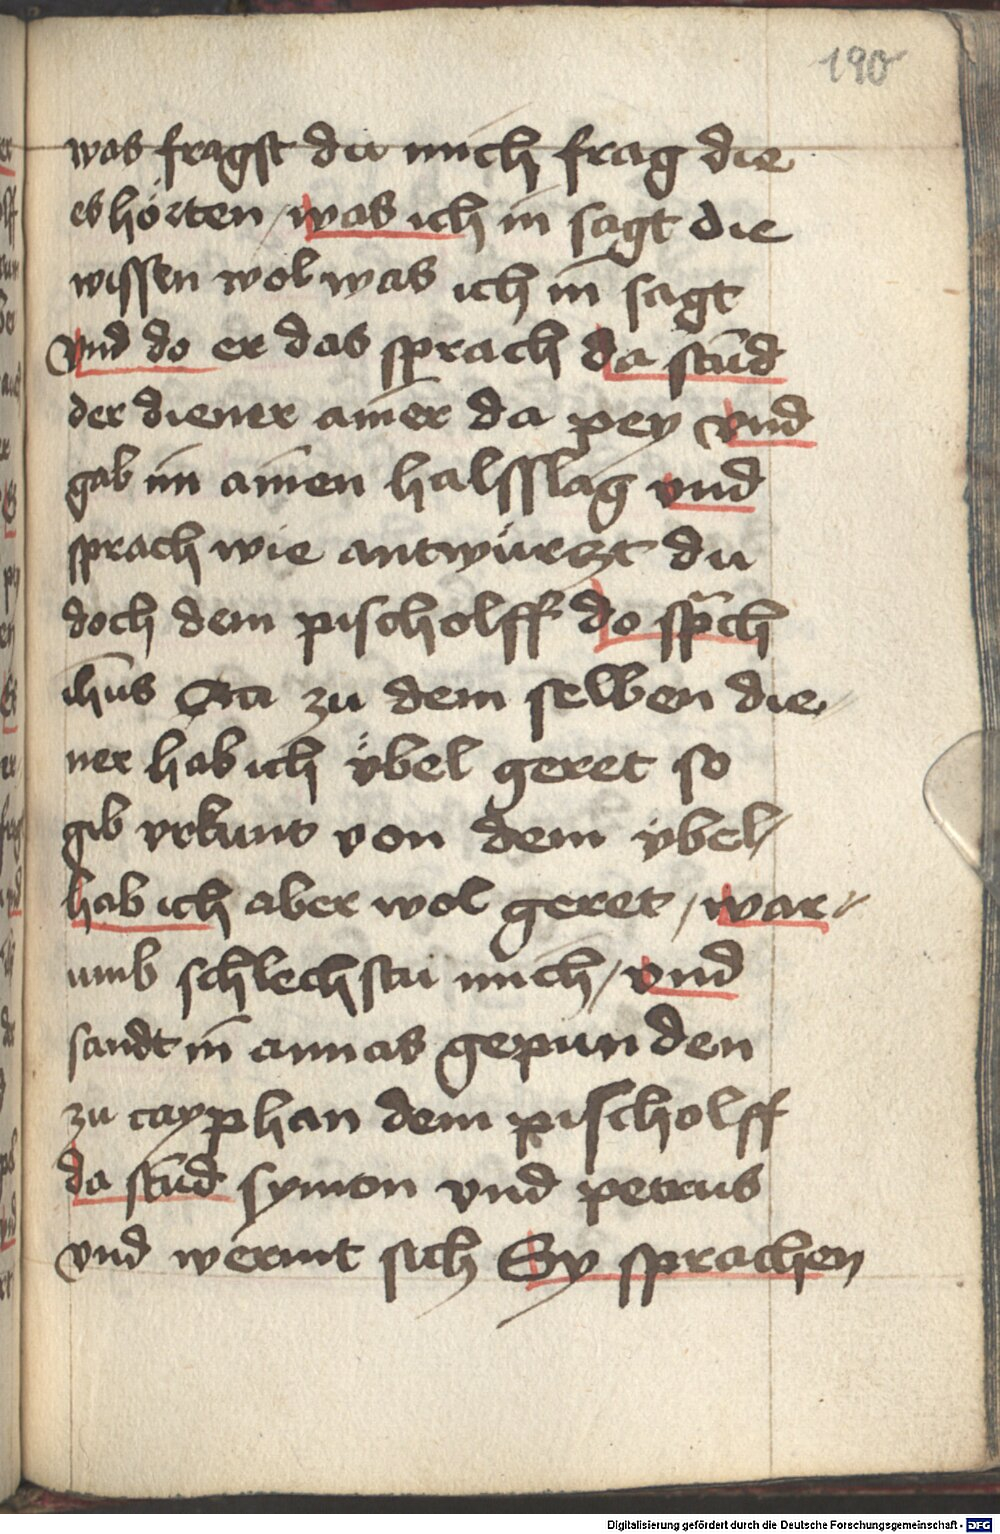 190
was fragst du mich frag die
es hörten / was ich in̄ sagt die
wissen wol was ich in̄ sagt
vnd do er das sprach da stūd
der diener ainer da pey vnd
gab im ainen halsslag vnd
sprach wie antwürtzt du
doch dem pischolff do sp̄ch
ih̄us zu dem selben die
ner hab ich übel geret so
gib vrkunt von dem übel /
hab ich aber wol geret / war
umb schlechstu mich / vnd
sandt in̄ annas gepunden
zu cayphan dem pischolff
da stūd symon vnd petrus
vnd wermt sich Sy sprachen
Digitalisierung gefördert durch die Deutsche Forschungsgemeinschaft - DFG